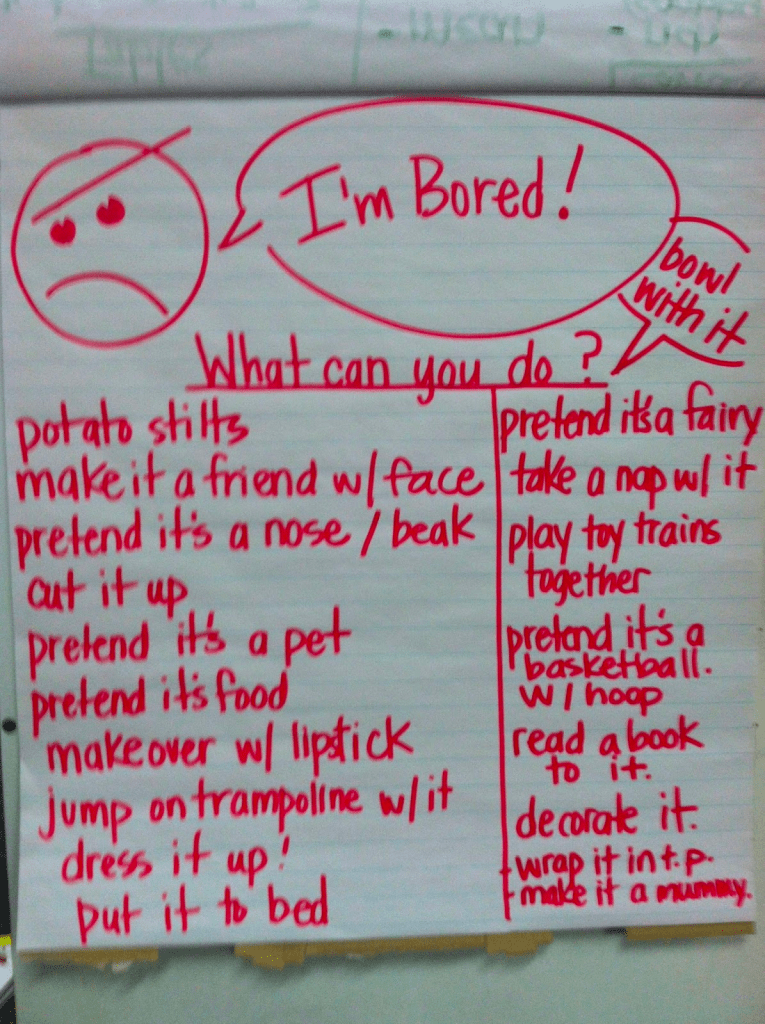 I'm Bored!
bowl
with it
What can you do?
potato stilts
make it a friend w/ face
pretend it's a nose / beak
cut it up
pretend it's a pet
pretend it's food
makeover w/ lipstick
jump on trampoline w/ it
dress it up!
put it to bed
pretend it's a fairy
take a nap w/ it
play toy trains
together
pretend it's a
basketball.
w/ hoop
read a book
to it.
decorate it.
- wrap it in t.p.
- make it a mummy.